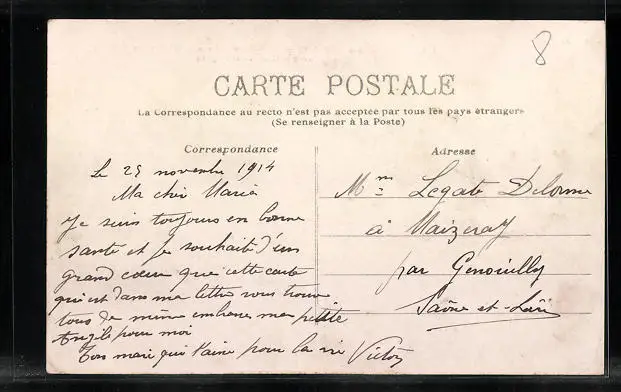 8
CARTE POSTALE
La Correspondance au recto n'est pas acceptée par tous les pays étrangers
(Se renseigner à la Poste)
Correspondance
Adresse
Le 25 novembre 1914
Ma cher Maria
Je suis toujours en bonne
santé et je souhaite d'un
grand cœur que cette carte
qui est dans ma lettre vous trouve
tous de même embrasse ma petite
pour moi
Ton mari qui t'aime pour la vie Victor
Mme Legate Delorme
à Maizeray
par Genouilly
Saône-et-Loire